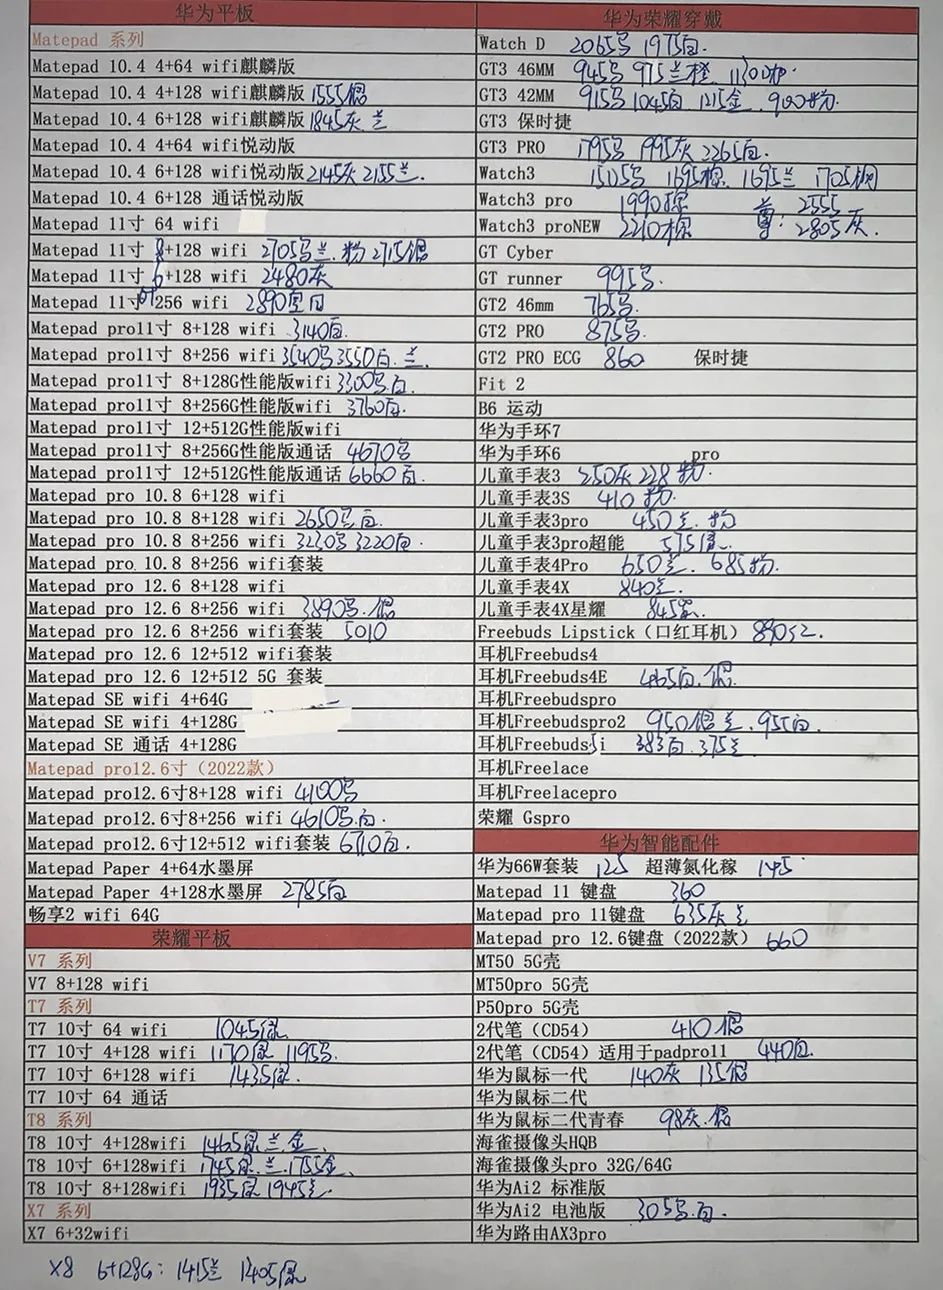 华为平板
Matepad 系列
Matepad 10.4 4+64 wifi麒麟版
Matepad 10.4 4+128 wifi麒麟版 1555银
Matepad 10.4 6+128 wifi麒麟版 1845灰 兰
Matepad 10.4 4+64 wifi悦动版
Matepad 10.4 6+128 wifi悦动版 2145灰 2155兰.
Matepad 10.4 6+128 通话悦动版
Matepad 11寸 64 wifi
Matepad 11寸 8+128 wifi 2705号兰.粉 2715银
Matepad 11寸 6+128 wifi 2480灰
Matepad 11寸 256 wifi 2890
Matepad pro11寸 8+128 wifi 3140白.
Matepad pro11寸 8+256 wifi 3540号 3550白.兰.
Matepad pro11寸 8+128G性能版wifi 3300号.白.
Matepad pro11寸 8+256G性能版wifi 3760白.
Matepad pro11寸 12+512G性能版wifi
Matepad pro11寸 8+256G性能版通话 4670号
Matepad pro11寸 12+512G性能版通话 6660白.
Matepad pro 10.8 6+128 wifi
Matepad pro 10.8 8+128 wifi 2650号.白.
Matepad pro 10.8 8+256 wifi 3230号 3220白.
Matepad pro 10.8 8+256 wifi套装
Matepad pro 12.6 8+128 wifi
Matepad pro 12.6 8+256 wifi 3890号.银
Matepad pro 12.6 8+256 wifi套装 5010
Matepad pro 12.6 12+512 wifi套装
Matepad pro 12.6 12+512 5G 套装
Matepad SE wifi 4+64G
Matepad SE wifi 4+128G
Matepad SE 通话 4+128G
Matepad pro12.6寸（2022款）
Matepad pro12.6寸8+128 wifi 4100号
Matepad pro12.6寸8+256 wifi 4610号.白.
Matepad pro12.6寸12+512 wifi套装 6710白.
Matepad Paper 4+64水墨屏
Matepad Paper 4+128水墨屏 2785白
畅享2 wifi 64G
荣耀平板
V7 系列
V7 8+128 wifi
T7 系列
T7 10寸 64 wifi 1045绿
T7 10寸 4+128 wifi 1170绿 1195号.
T7 10寸 6+128 wifi 1435绿.
T7 10寸 64 通话
T8 系列
T8 10寸 4+128wifi 1465绿.兰.金.
T8 10寸 6+128wifi 1745绿.兰.1755金.
T8 10寸 8+128wifi 1935绿 1945兰.
X7 系列
X7 6+32wifi
X8 6+128G: 1415兰 1405绿
华为荣耀穿戴
Watch D 2065号 1975白.
GT3 46MM 945号 975兰橙 1130
GT3 42MM 915号 1045白 1215金. 900粉.
GT3 保时捷
GT3 PRO 1795号 1995灰 2265白.
Watch3 1505号 1695棕. 1695兰 1705钢
Watch3 pro 1990棕 尊: 2555
Watch3 proNEW 2210棕 2805灰.
GT Cyber
GT runner 995号.
GT2 46mm 765号.
GT2 PRO 875号.
GT2 PRO ECG 860 保时捷
Fit 2
B6 运动
华为手环7
华为手环6 pro
儿童手表3 250灰 228粉.
儿童手表3S 410粉.
儿童手表3pro 450兰.粉
儿童手表3pro超能 575绿.
儿童手表4Pro 650兰. 685粉.
儿童手表4X 840兰.
儿童手表4X星耀 845紫.
Freebuds Lipstick（口红耳机） 890红.
耳机Freebuds4
耳机Freebuds4E 465白.银.
耳机Freebudspro
耳机Freebudspro2 950银兰.955白.
耳机Freebuds5i 383白.375兰
耳机Freelace
耳机Freelacepro
荣耀 Gspro
华为智能配件
华为66W套装 125 超薄氮化稼 145.
Matepad 11 键盘 360
Matepad pro 11键盘 635灰 兰
Matepad pro 12.6键盘（2022款） 660
MT50 5G壳
MT50pro 5G壳
P50pro 5G壳
2代笔（CD54） 410银
2代笔（CD54）适用于padpro11 440白.
华为鼠标一代 140灰 135银
华为鼠标二代
华为鼠标二代青春 98灰.银.
海雀摄像头HQB
海雀摄像头pro 32G/64G
华为Ai2 标准版
华为Ai2 电池版 305号.白.
华为路由AX3pro